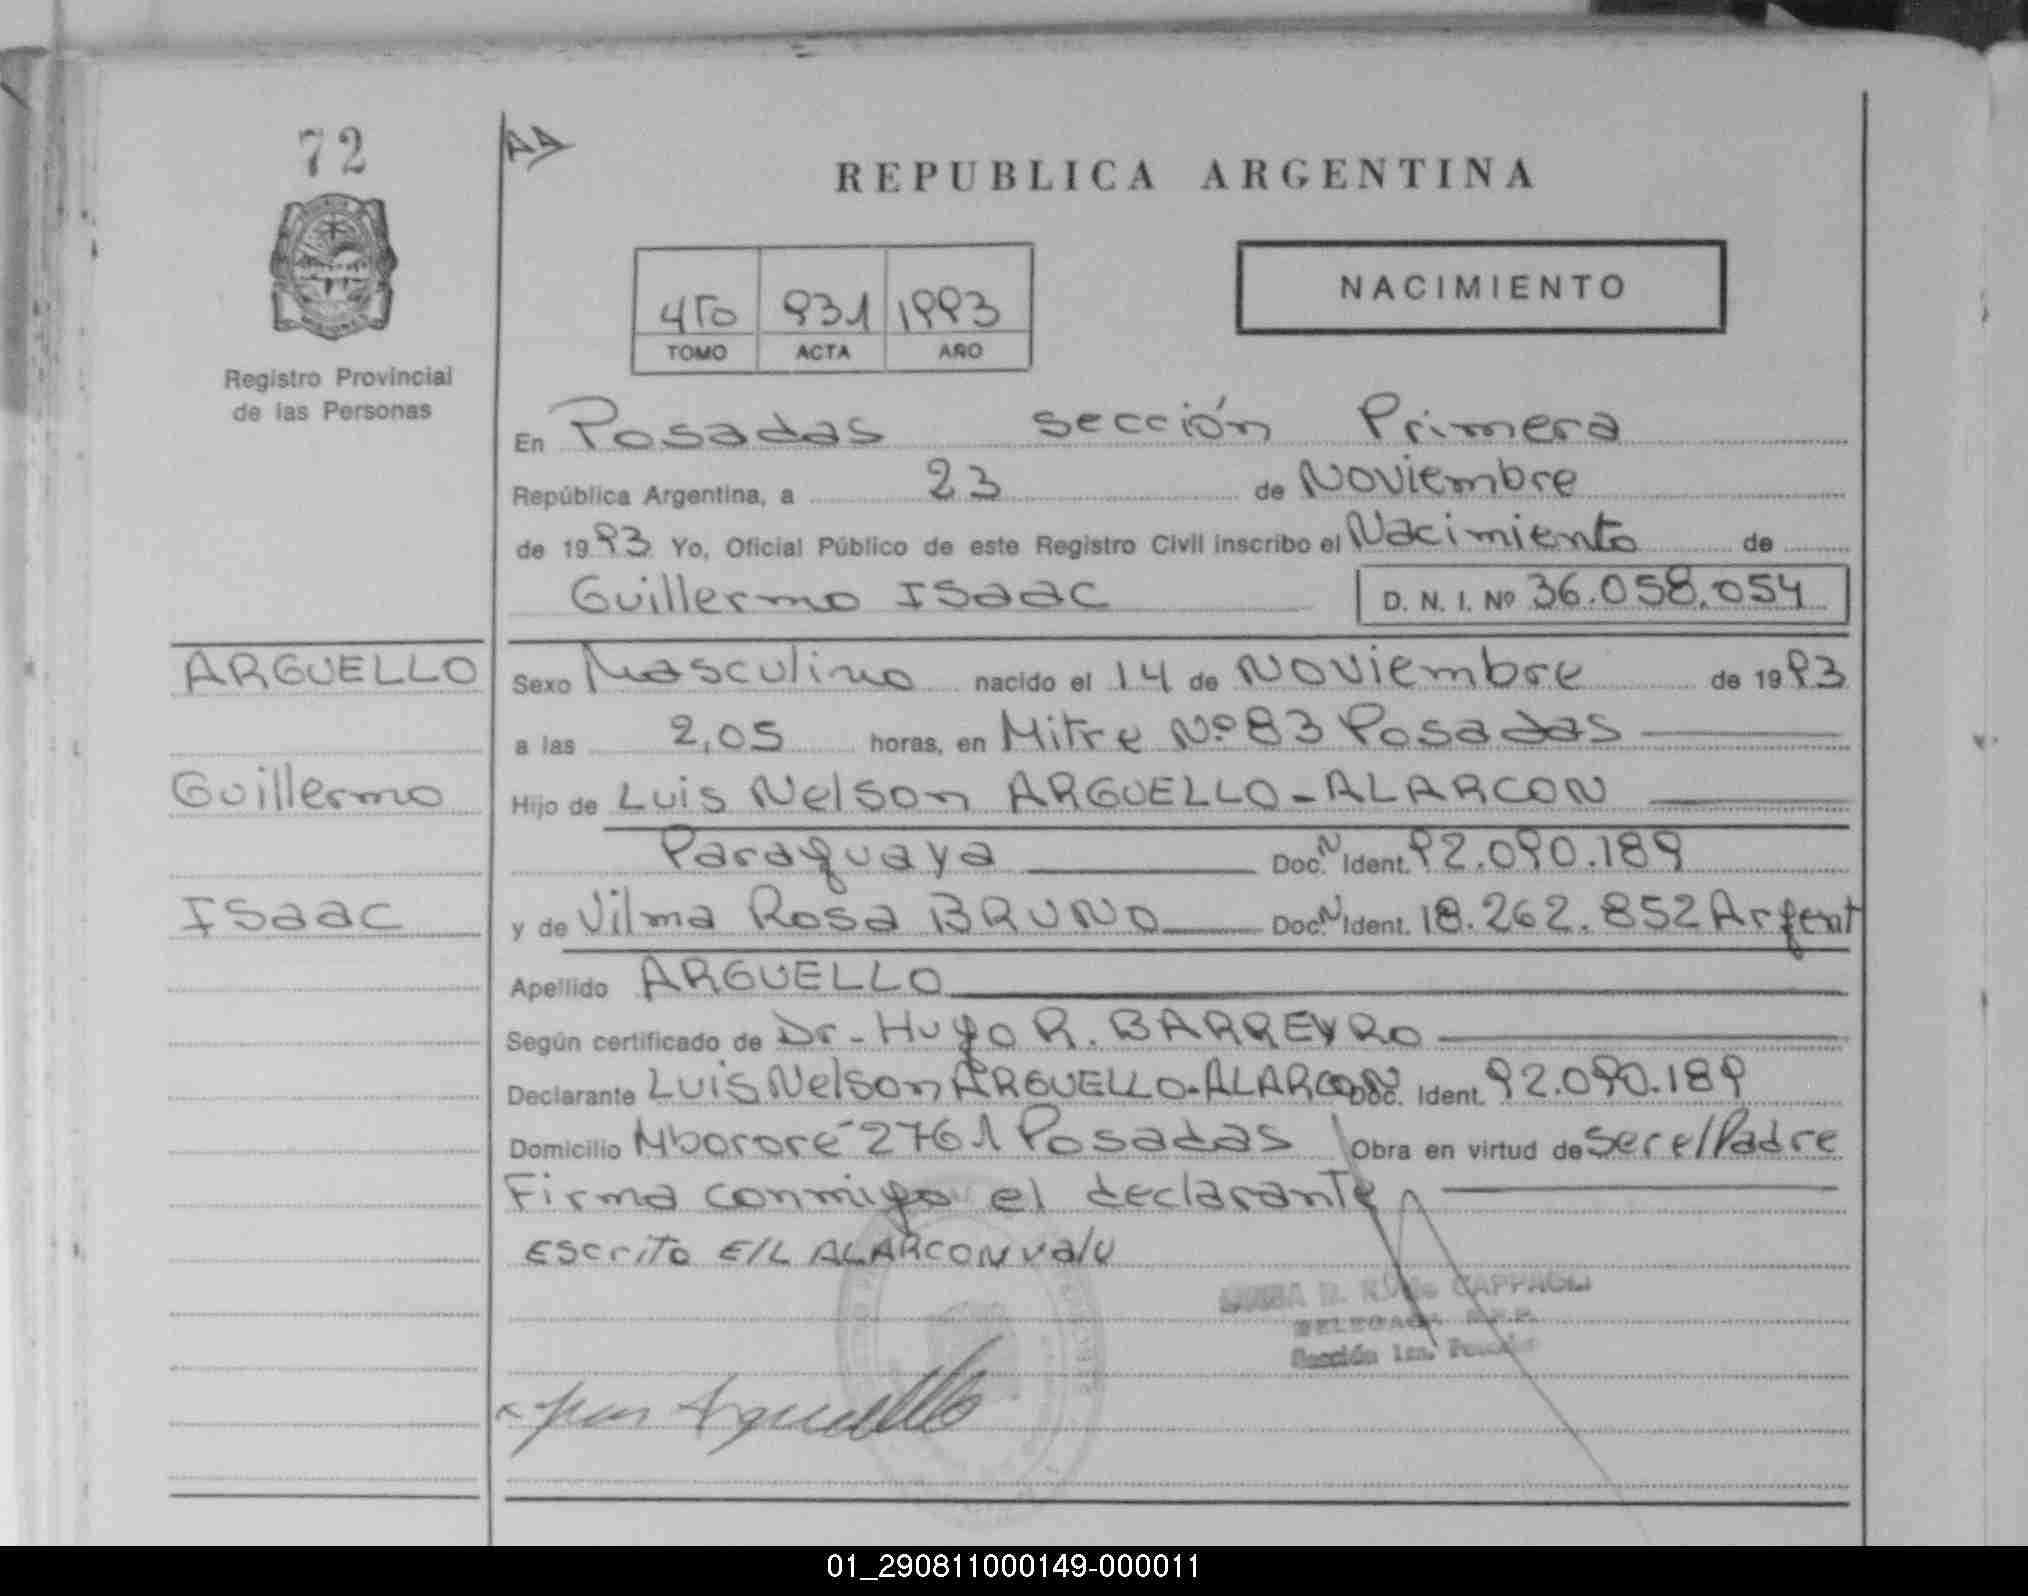 72
AA
REPUBLICA ARGENTINA
NACIMIENTO
4To 931 1993
TOMO ACTA AÑO
Registro Provincial
de las Personas
En Posadas sección Primera
República Argentina, a 23 de Noviembre
de 1993 Yo, Oficial Público de este Registro Civil inscribo el Nacimiento de
Guillermo ISaac D. N. I. Nº 36.058.054
ARGUELLO
Guillermo
ISaac
Sexo Masculino nacido el 14 de Noviembre de 1993
a las 2,05 horas, en Mitre Nº 83 Posadas
Hijo de Luis Nelson ARGUELLO-ALARCON
Paraguaya Doc. N Ident. 92.090.189
y de Vilma Rosa BRUNO Doc. N Ident. 18.262.852 Argent
Apellido ARGUELLO
Según certificado de Dr- Hugo R. BARREYRO
Declarante Luis Nelson ARGUELLO-ALARCON Doc. Ident. 92.090.189
Domicilio Mbororé 2761 Posadas Obra en virtud de ser el Padre
Firma conmigo el declarante
Escrito E/L ALARCON Vale
CAPPAGLI
DELEGADA R.P.P.
Sección 1ra. Posadas
Arguello
01_290811000149-000011